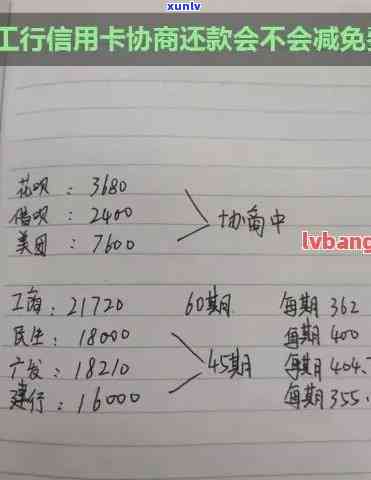 xunlv
工行信用卡协商还款会不会减免
花呗：3680
借呗：2400 协商中
美团：7600
lvbang
工商：21720 60期 每期 362
民生：18000 每期 400
广发：18210 45期 每期 404.
建行：16000 每期 355.